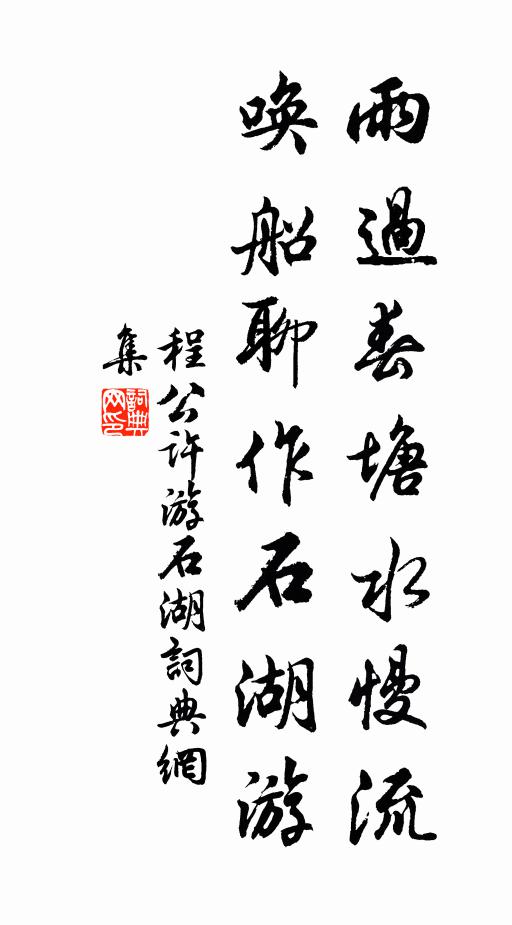 雨過春塘水慢流
喚船聊作石湖游
程公許游石湖詞典網
集
詞典
网印